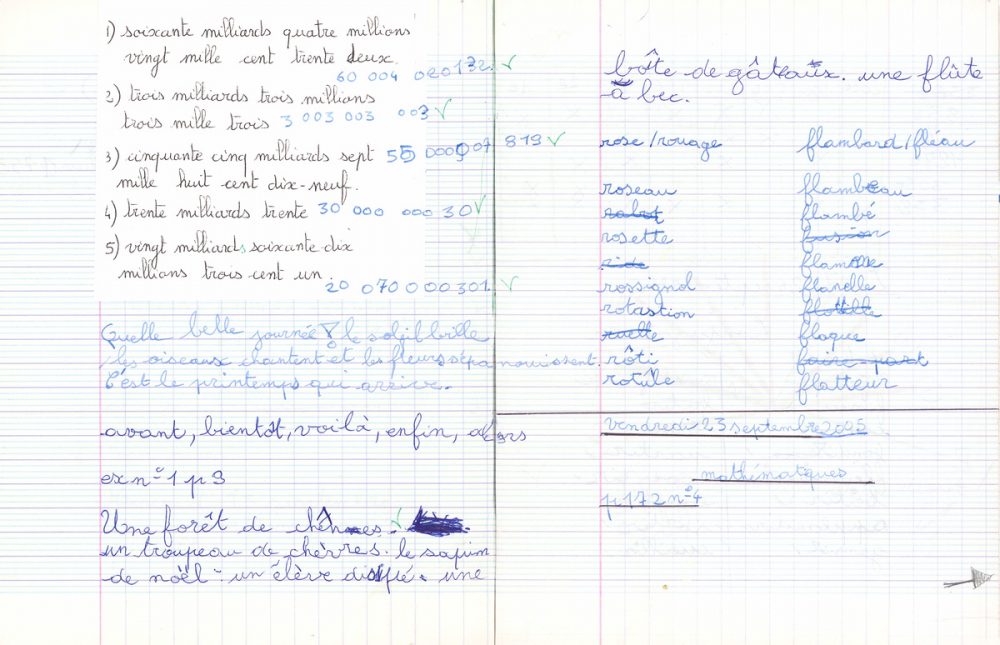 1) soixante milliards quatre millions
vingt mille cent trente deux.
60 004 020132.
2) trois milliards trois millions
trois mille trois 3 003 003 003
3) cinquante cinq milliards sept 55 000 007 819
mille huit cent dix-neuf.
4) trente milliards trente 30 000 000 30
5) vingt milliards soixante dix
millions trois cent un.
20 070000301.
Quelle belle journée! le soleil brille
les oiseaux chantent et les fleurs s'épanouissent.
C'est le printemps qui arrive.
avant, bientôt, voilà, enfin, alors
ex n° 1 p 9
Une forêt de chênes.
un troupeau de chèvres. le sapin
de noèl. un élève dissipé. une
boîte de gâteaux. une flûte
à bec.
rose/rouage flambard/fléau
roseau flambeau
rabot flambé
rosette fusion
ride flamme
rossignol flanelle
rotastion flottille
ruelle floque
rôti faire-part
rotule flatteur
vendredi 23 septembre 2005
mathématiques
p 172 n°4